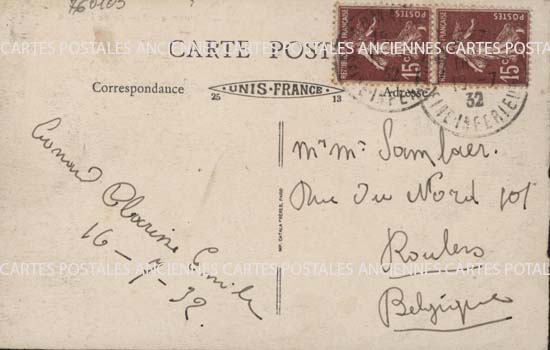 76 0103
CARTE POST
Correspondance
UNIS-FRANCE
25
13
Adresse
REPUBLIQUE FRANÇAISE
POSTES
15c
REPUBLIQUE FRANÇAISE
POSTES
15c
32
INE-INFERIEU
INE-INFERIEU
Mr Mr Samlaer.
Rue Du Nord 101
Roulers
Belgique
Emile
16-7-32.
IMP. CATALA FRÈRES, PARIS
CARTES POSTALES ANCIENNES CARTES POSTALES ANCIENNES
CARTES POSTALES ANCIENNES CARTES POSTALES ANCIENNES